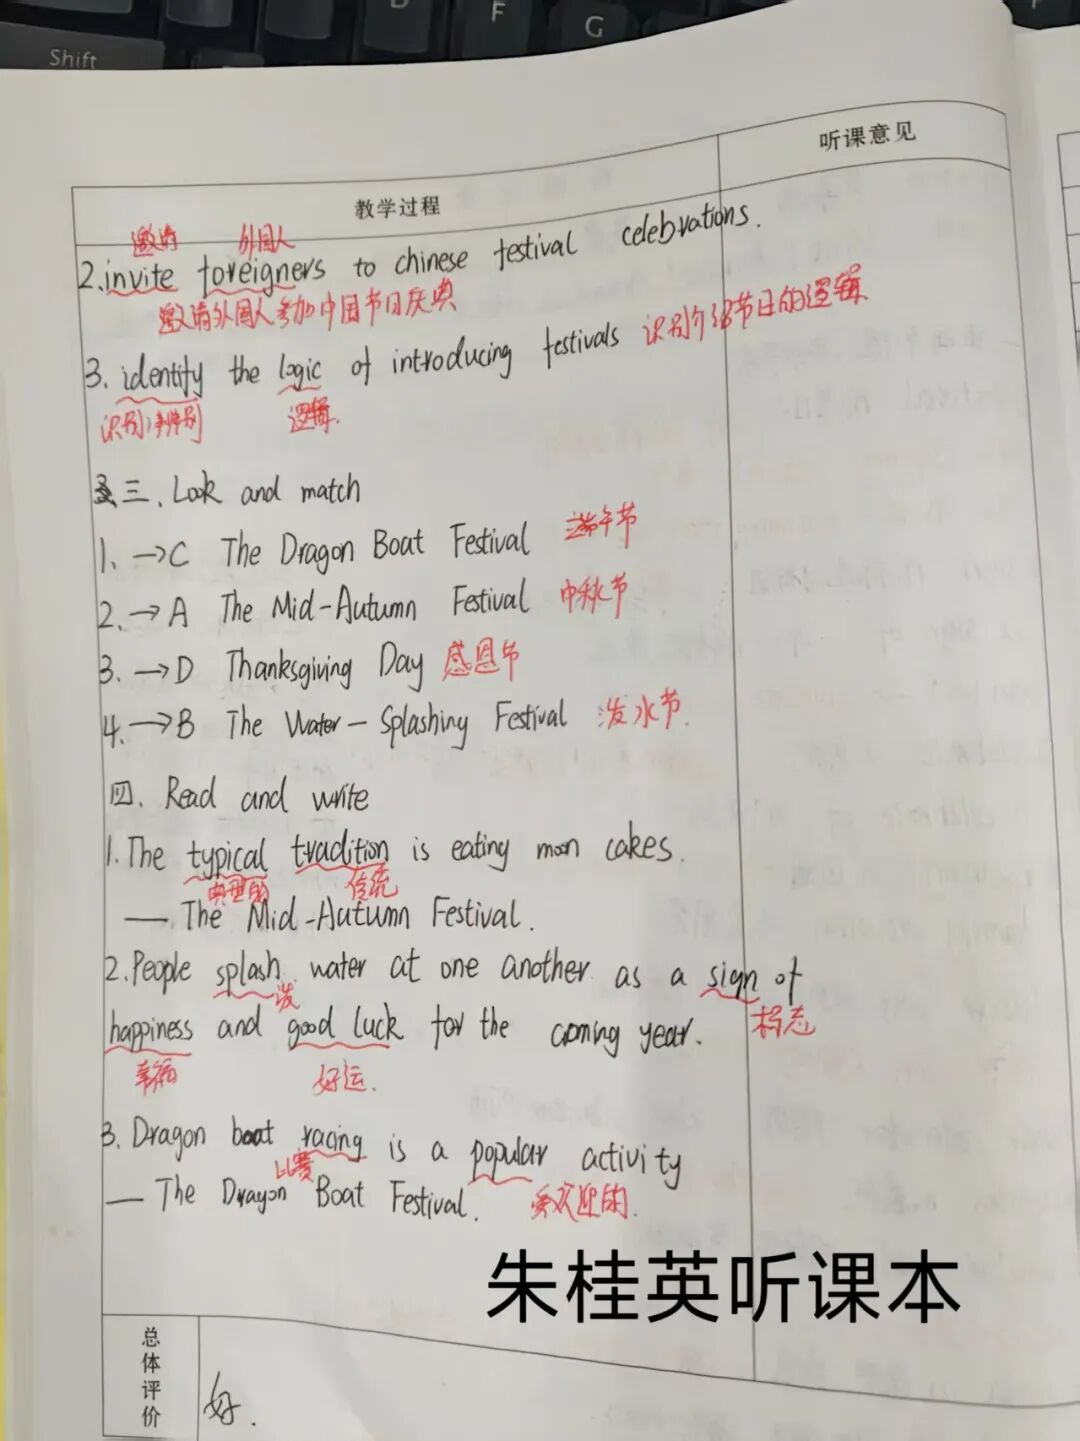 Shift
D
F
G
听课意见
教学过程
邀请 外国人
2.invite foreigners to chinese festival celebrations.
邀请外国人参加中国节日庆典
3. identify the logic of introducing festivals 识别介绍节日的逻辑
识别,辨别 逻辑.
三. Look and match
1. →C The Dragon Boat Festival 端午节
2. →A The Mid-Autumn Festival 中秋节
3. →D Thanksgiving Day 感恩节
4. →B The Water-Splashing Festival 泼水节
四. Read and write
1.The typical tradition is eating moon cakes.
典型的 传统
— The Mid-Autumn Festival.
2.People splash water at one another as a sign of
泼 标志
happiness and good luck for the coming year.
幸福 好运.
3. Dragon boat racing is a popular activity
比赛 受欢迎的.
— The Dragon Boat Festival.
朱桂英听课本
总体评价
好.